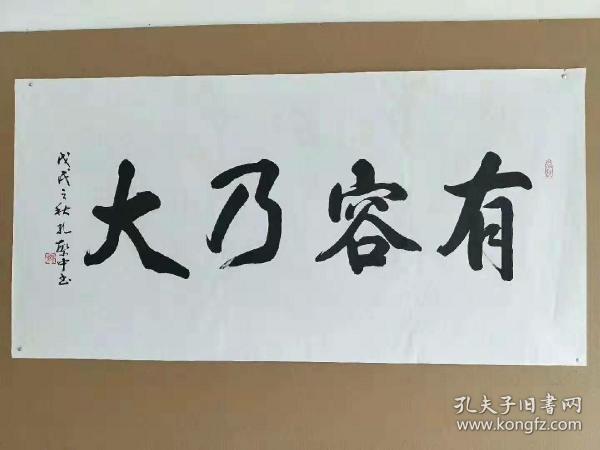 有容乃大
戊戌之秋孔聚中书
孔夫子旧书网
www.kongfz.com